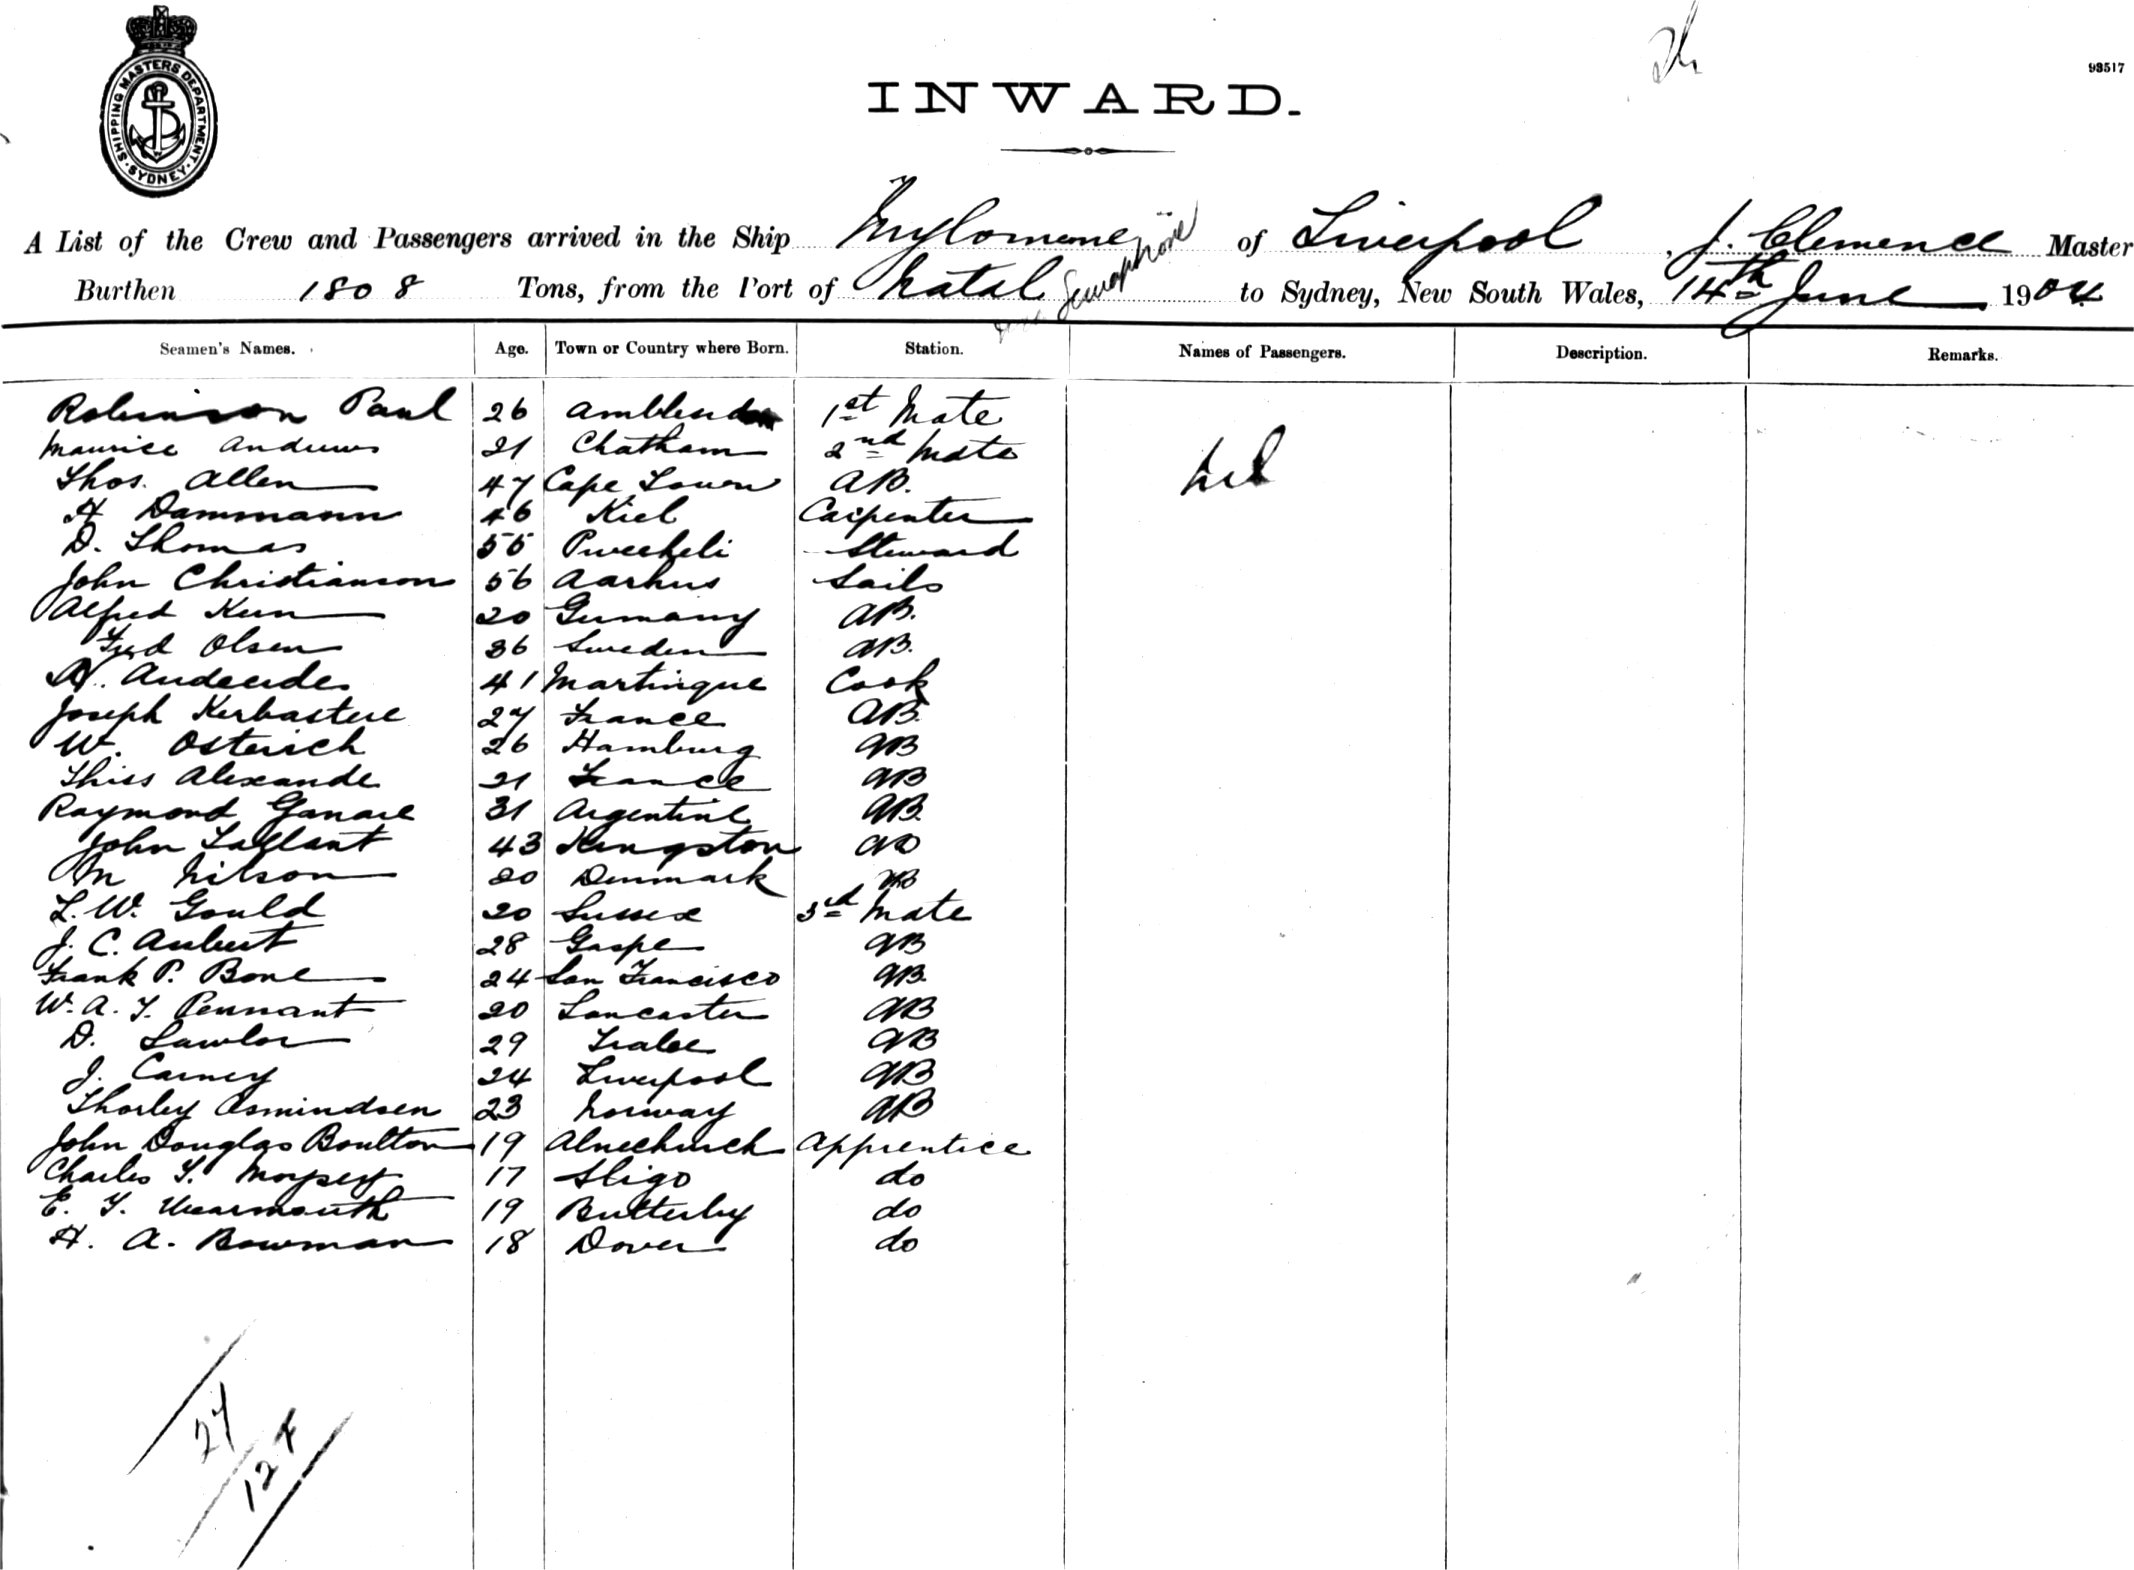 SHIPPING MASTERS DEPARTMENT SYDNEY
93517
INWARD.
A List of the Crew and Passengers arrived in the Ship of Liverpool, J. Clemence Master
Burthen 1808 Tons, from the Port of Natal to Sydney, New South Wales, 14th June 1904
Seamen's Names. Age. Town or Country where Born. Station. Names of Passengers. Description. Remarks.
Robinson Paul 26 1st Mate
Maurice Andrews 21 Chatham 2nd Mate
Thos. Allen 47 Cape Town AB. Nil
H Dammann 46 Kiel Carpenter
D. Thomas 55 Pwecheli Steward
John Christianson 56 Aarhus Sails
Alfred 20 Germany AB.
Fred Olsen 36 Sweden AB.
41 Martinque Cook
Joseph Kerbastere 27 France AB.
W. Osterich 26 Hamburg AB
Thiss Alexande 21 France AB
Raymond 31 Argentine AB.
John 43 Kingston AB
M Nilson 20 Denmark AB
L. W. Gould 20 Sussex 3rd Mate
J. C. Aubert 28 Gaspe AB
Frank P. Bone 24 San Francisco AB.
W. A. T. Pennant 20 Lancaster AB
D. Lawlor 29 Tralee AB
J. Carney 24 Liverpool AB
Thorley Osmindsen 23 Norway AB
John Douglas Boulton 19 Alvechurch Apprentice
Charles T. 17 Sligo do
E. T. Wearmouth 19 Butterby do
H. A. Bowman 18 Dover do
27
124